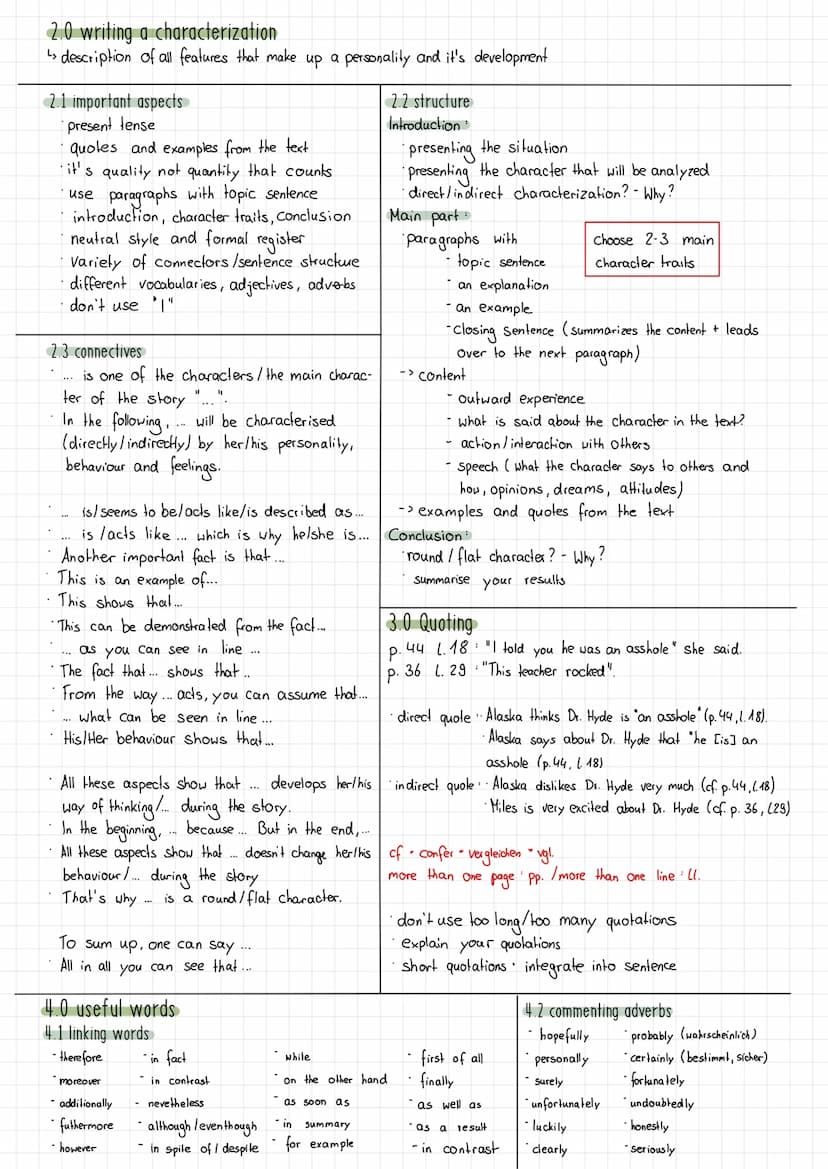 2.0 writing a characterization
↳ description of all features that make up a personality and it's development
2.1 important aspects
· present tense
· quotes and examples from the text
· it's quality not quantity that counts
· use paragraphs with topic sentence
· introduction, character traits, conclusion
· neutral style and formal register
· variety of connectors/sentence structure
· different vocabularies, adjectives, adverbs
· don't use "I"
2.3 connectives
· ... is one of the characters/the main charac-
ter of the story "...".
· In the following, ... will be characterised
(directly/indirectly) by her/his personality,
behaviour and feelings.
· ... is/seems to be/acts like/is described as...
· ... is /acts like ... which is why he/she is...
· Another important fact is that ...
· This is an example of...
· This shows that...
· This can be demonstrated from the fact...
· ... as you can see in line ...
· The fact that... shows that ..
· From the way ... acts, you can assume that...
· ... what can be seen in line ...
· His/Her behaviour shows that...
· All these aspects show that ... develops her/his
way of thinking/... during the story.
· In the beginning, ... because ... But in the end,...
· All these aspects show that ... doesn't change her/his
behaviour/... during the story
· That's why ... is a round/flat character.
To sum up, one can say ...
All in all you can see that ...
2.2 structure
Introduction:
· presenting the situation
· presenting the character that will be analyzed
· direct/indirect characterization? - Why?
Main part:
· paragraphs with
- topic sentence
- an explanation
- an example
- closing sentence (summarizes the content + leads
over to the next paragraph)
choose 2-3 main
character traits
-> content
- outward experience
- what is said about the character in the text?
- action/interaction with others
- speech (what the character says to others and
how, opinions, dreams, attitudes)
-> examples and quotes from the text
Conclusion:
· round / flat character? - Why?
· summarise your results
3.0 Quoting
p. 44 l. 18 : "I told you he was an asshole" she said.
p. 36 l. 29 : "This teacher rocked".
· direct quote : · Alaska thinks Dr. Hyde is "an asshole" (p.44, l.18).
· Alaska says about Dr. Hyde that "he [is] an
asshole (p.44, l.18)
· indirect quote : · Alaska dislikes Dr. Hyde very much (cf p.44, l.18)
· Miles is very excited about Dr. Hyde (cf. p. 36, l.29)
cf = confer = vergleichen = vgl.
more than one page : pp. /more than one line : ll.
· don't use too long/too many quotations
· explain your quotations
· short quotations : integrate into sentence
4.0 useful words
4.1 linking words
· therefore
· moreover
· additionally
· futhermore
· however
· in fact
· in contrast
- nevetheless
· although/eventhough
- in spite of / despite
· while
· on the other hand
· as soon as
· in summary
· for example
· first of all
· finally
· as well as
· as a result
- in contrast
4.2 commenting adverbs
· hopefully
· personally
· surely
· unfortunately
· luckily
· clearly
· probably (wahrscheinlich)
· certainly (bestimmt, sicher)
· fortunately
· undoubtedly
· honestly
· seriously